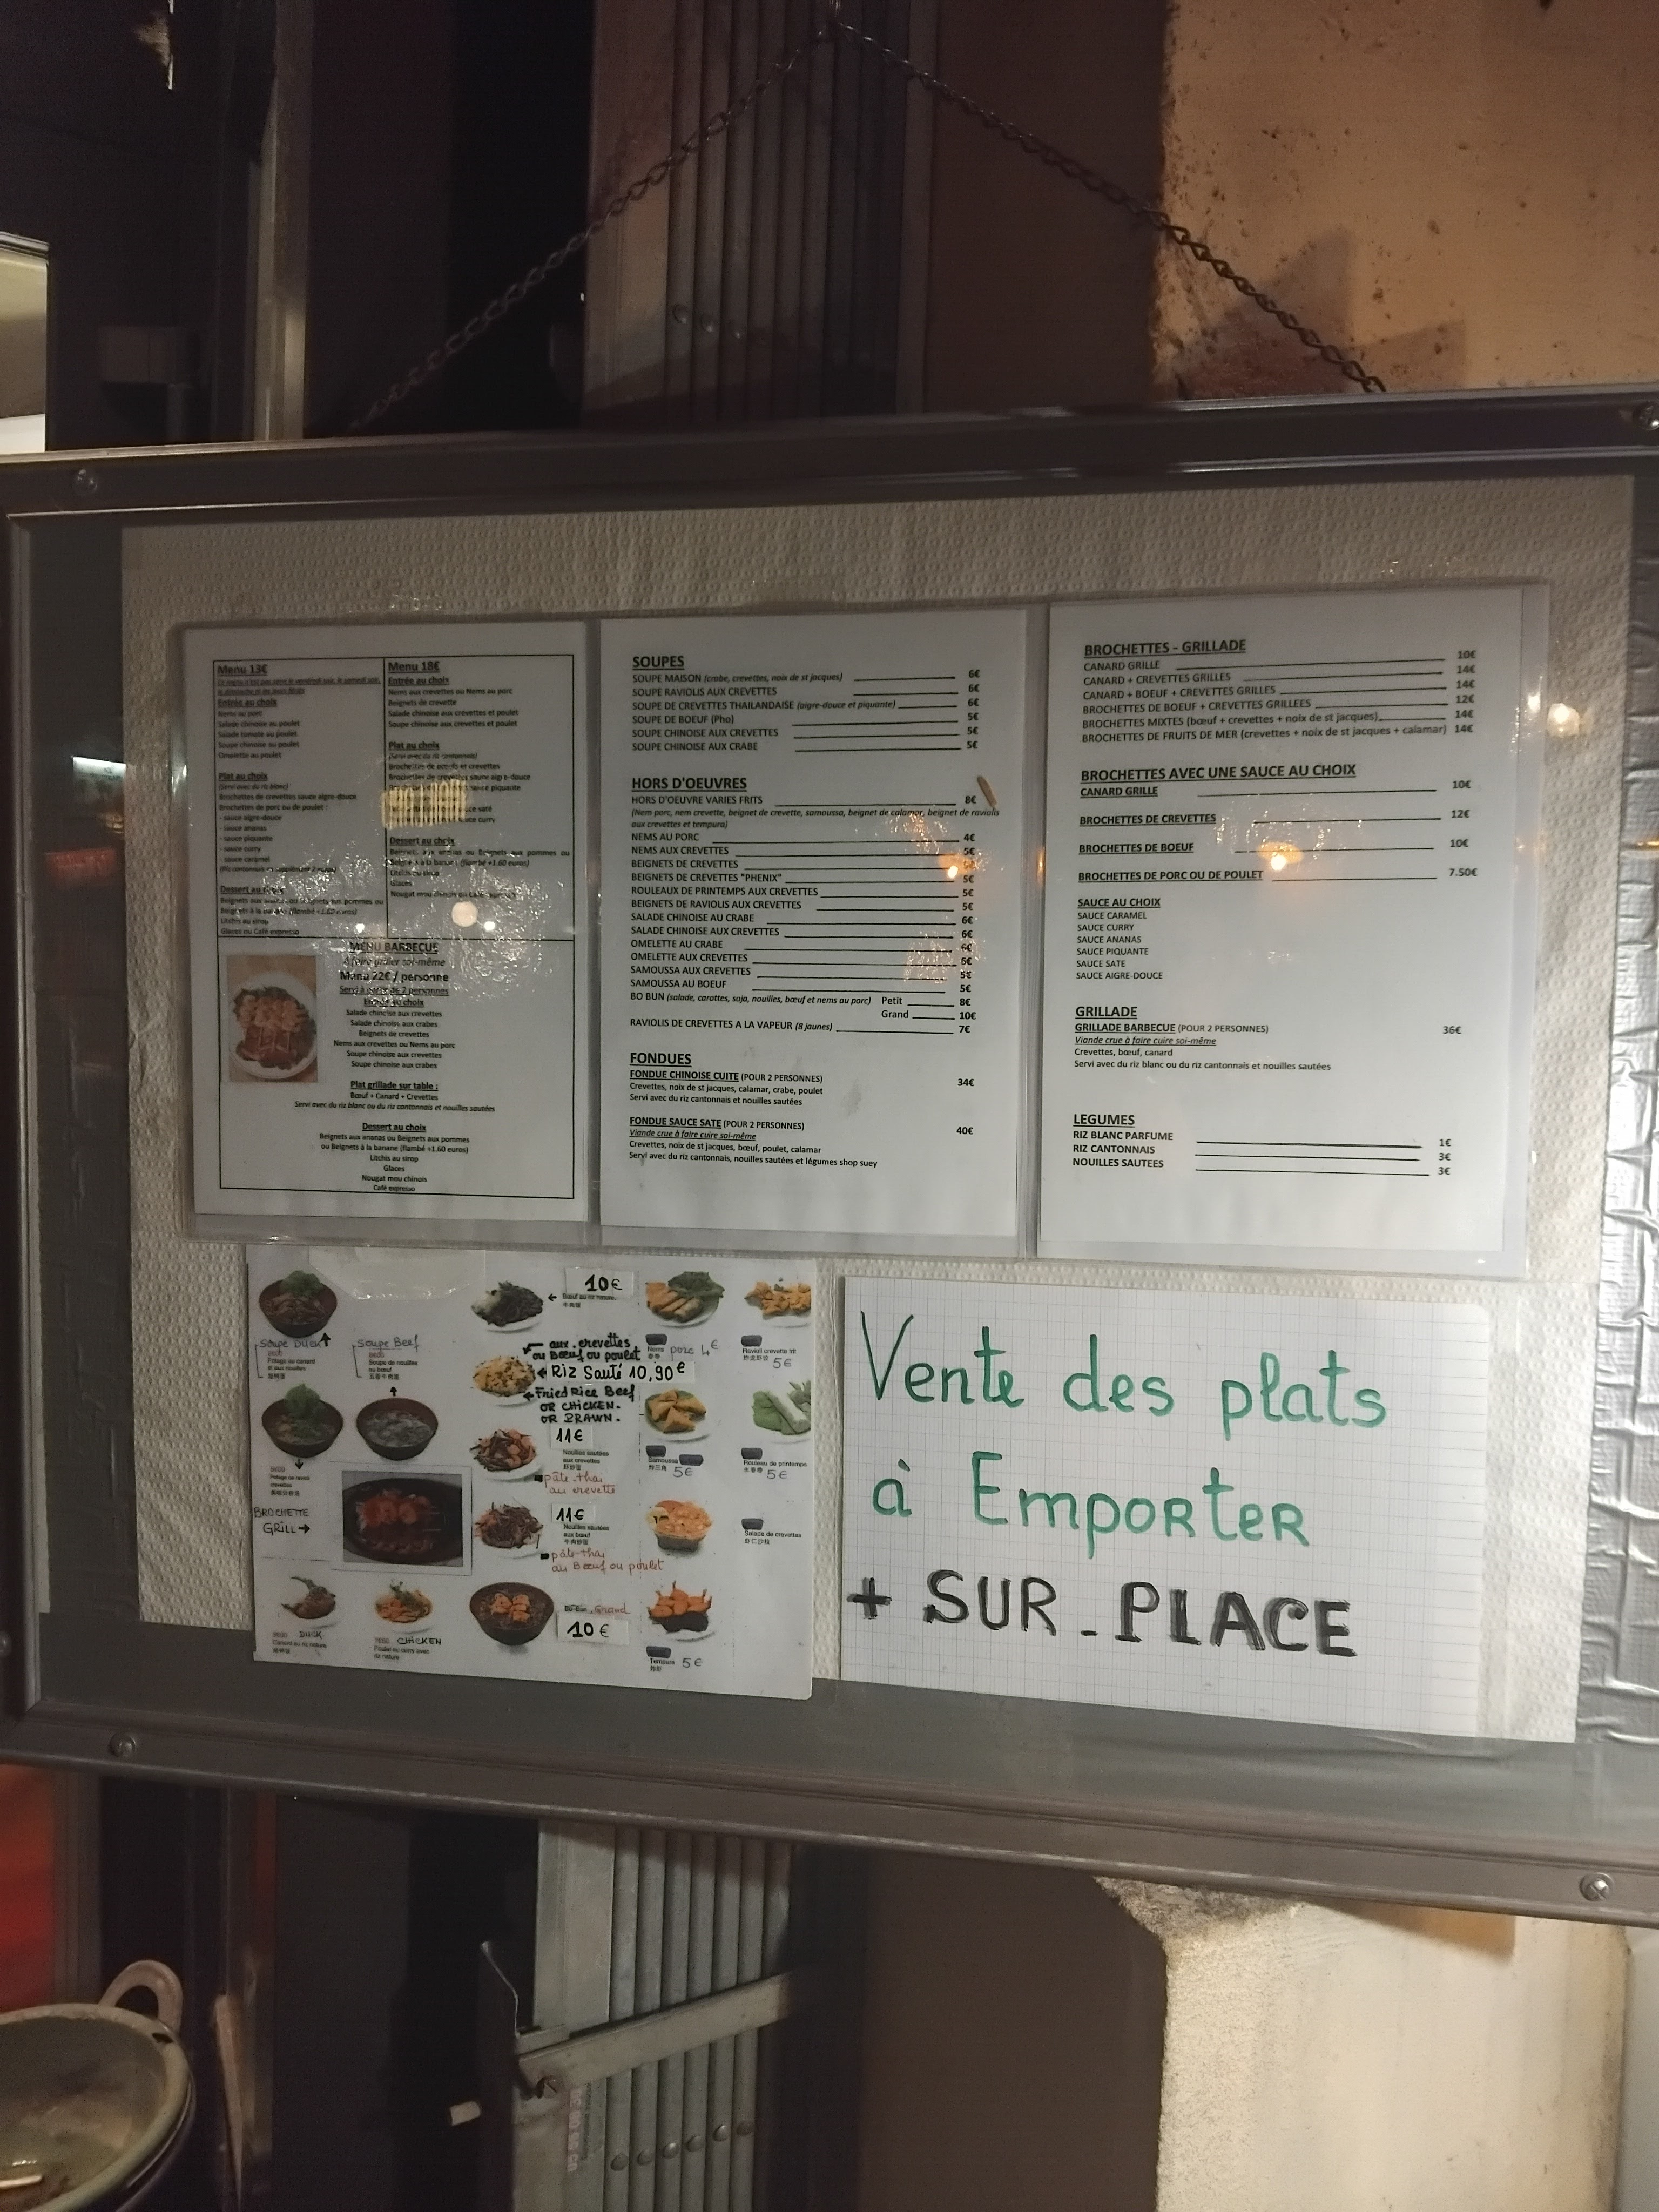 Menu 13€
Entrée au choix
Nems au porc
Salade chinoise au poulet
Salade tomate au poulet
Soupe chinoise au poulet
Omelette au poulet
Plat au choix
(Servi avec du riz blanc)
Brochettes de crevettes sauce aigre-douce
Brochettes de porc ou de poulet :
- sauce aigre-douce
- sauce ananas
- sauce piquante
- sauce curry
- sauce caramel
Dessert au choix
Beignets aux ananas ou Beignets aux pommes ou
Beignets à la banane (flambé +1.60 euros)
Litchis au sirop
Glaces ou Café expresso
Menu 18€
Entrée au choix
Nems aux crevettes ou Nems au porc
Beignets de crevette
Salade chinoise aux crevettes et poulet
Soupe chinoise aux crevettes et poulet
Plat au choix
Brochettes de bœufs et crevettes
Brochettes de crevettes sauce aigre-douce
sauce piquante
sauce saté
sauce curry
Dessert au choix
Beignets aux ananas ou Beignets aux pommes ou
Beignets à la banane (flambé +1.60 euros)
Litchis au sirop
Glaces
Nougat mou chinois ou Café expresso
MENU BARBECUE
à faire griller soi-même
Menu 22€ / personne
Servi à partir de 2 personnes
Entrée au choix
Salade chinoise aux crevettes
Salade chinoise aux crabes
Beignets de crevettes
Nems aux crevettes ou Nems au porc
Soupe chinoise aux crevettes
Soupe chinoise aux crabes
Plat grillade sur table :
Bœuf + Canard + Crevettes
Servi avec du riz blanc ou du riz cantonnais et nouilles sautées
Dessert au choix
Beignets aux ananas ou Beignets aux pommes
ou Beignets à la banane (flambé +1.60 euros)
Litchis au sirop
Glaces
Nougat mou chinois
Café expresso
SOUPES
SOUPE MAISON (crabe, crevettes, noix de st jacques) 6€
SOUPE RAVIOLIS AUX CREVETTES 6€
SOUPE DE CREVETTES THAILANDAISE (aigre-douce et piquante) 6€
SOUPE DE BOEUF (Pho) 5€
SOUPE CHINOISE AUX CREVETTES 5€
SOUPE CHINOISE AUX CRABE 5€
HORS D'OEUVRES
HORS D'OEUVRE VARIES FRITS 8€
(Nem porc, nem crevette, beignet de crevette, samoussa, beignet de calamar, beignet de raviolis
aux crevettes et tempura)
NEMS AU PORC 4€
NEMS AUX CREVETTES 5€
BEIGNETS DE CREVETTES
BEIGNETS DE CREVETTES "PHENIX" 5€
ROULEAUX DE PRINTEMPS AUX CREVETTES 5€
BEIGNETS DE RAVIOLIS AUX CREVETTES 5€
SALADE CHINOISE AU CRABE 6€
SALADE CHINOISE AUX CREVETTES 6€
OMELETTE AU CRABE
OMELETTE AUX CREVETTES 5€
SAMOUSSA AUX CREVETTES 5€
SAMOUSSA AU BOEUF 5€
BO BUN (salade, carottes, soja, nouilles, bœuf et nems au porc) Petit 8€
Grand 10€
RAVIOLIS DE CREVETTES A LA VAPEUR (8 jaunes) 7€
FONDUES
FONDUE CHINOISE CUITE (POUR 2 PERSONNES) 34€
Crevettes, noix de st jacques, calamar, crabe, poulet
Servi avec du riz cantonnais et nouilles sautées
FONDUE SAUCE SATE (POUR 2 PERSONNES) 40€
Viande crue à faire cuire soi-même
Crevettes, noix de st jacques, bœuf, poulet, calamar
Servi avec du riz cantonnais, nouilles sautées et légumes shop suey
BROCHETTES - GRILLADE
CANARD GRILLE 10€
CANARD + CREVETTES GRILLES 14€
CANARD + BOEUF + CREVETTES GRILLES 14€
BROCHETTES DE BOEUF + CREVETTES GRILLEES 12€
BROCHETTES MIXTES (bœuf + crevettes + noix de st jacques) 14€
BROCHETTES DE FRUITS DE MER (crevettes + noix de st jacques + calamar) 14€
BROCHETTES AVEC UNE SAUCE AU CHOIX
CANARD GRILLE 10€
BROCHETTES DE CREVETTES 12€
BROCHETTES DE BOEUF 10€
BROCHETTES DE PORC OU DE POULET 7.50€
SAUCE AU CHOIX
SAUCE CARAMEL
SAUCE CURRY
SAUCE ANANAS
SAUCE PIQUANTE
SAUCE SATE
SAUCE AIGRE-DOUCE
GRILLADE
GRILLADE BARBECUE (POUR 2 PERSONNES) 36€
Viande crue à faire cuire soi-même
Crevettes, bœuf, canard
Servi avec du riz blanc ou du riz cantonnais et nouilles sautées
LEGUMES
RIZ BLANC PARFUME 1€
RIZ CANTONNAIS 3€
NOUILLES SAUTEES 3€
Soupe Duck
Potage au canard
et aux nouilles
Soupe Beef
Soupe de nouilles
au bœuf
BROCHETTE
GRILL →
DUCK
Canard au riz nature
CHICKEN
Poulet au curry avec
riz nature
10€
aux crevettes
ou Bœuf ou poulet
Riz Sauté 10,90€
Fried Rice Beef
OR CHICKEN.
OR PRAWN.
11€
Nouilles sautées
aux crevettes
pâte-thai
au crevette
11€
Nouilles sautées
aux bœuf
pâte-thai
au Bœuf ou poulet
Grand
10€
Nems porc 4€
Samoussa
5€
Tempura 5€
Ravioli crevette frit
5€
Rouleau de printemps
5€
Salade de crevettes
Vente des plats
à Emporter
+ SUR-PLACE